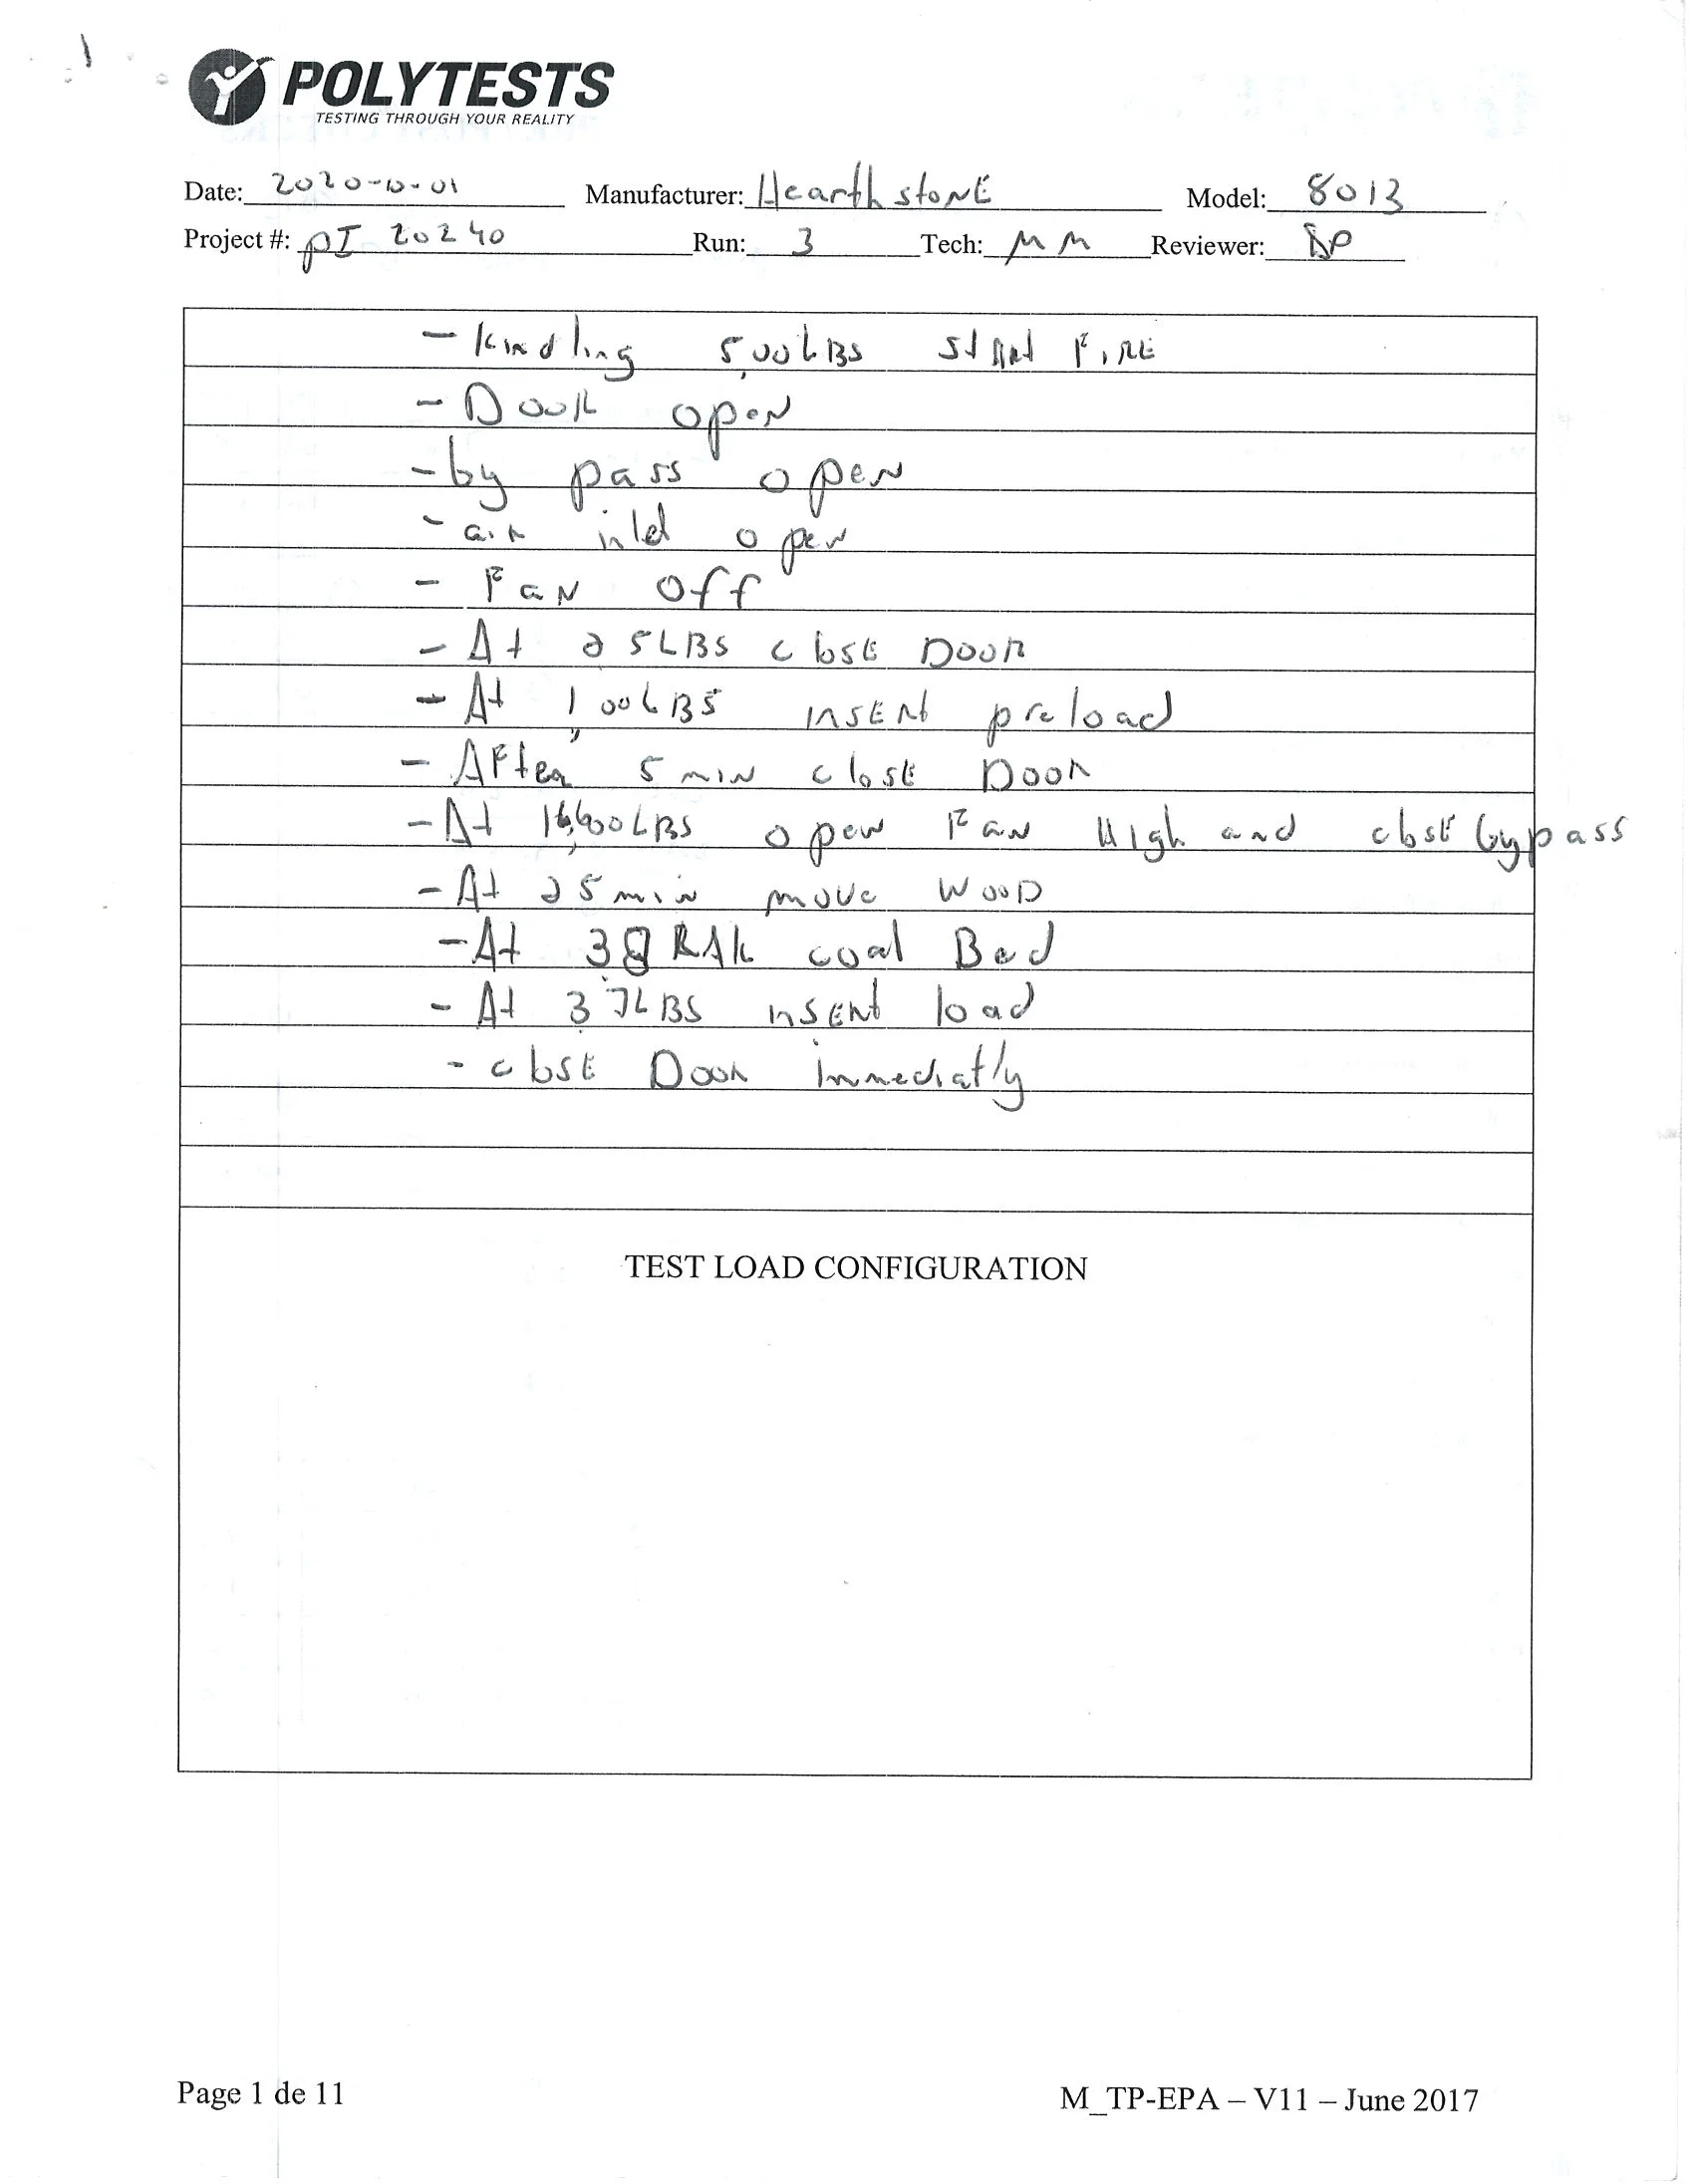 POLYTESTS
TESTING THROUGH YOUR REALITY
Date: 2020-10-01 Manufacturer: HearthstoNE Model: 8013
Project #: pI 20240 Run: 3 Tech: MM Reviewer: DP
- Kindling 5,00LBS StARt FIRE
- DooR opeN
- by pass opeN
- aiR inlet opeN
- FaN Off
- At 2.5LBS closE DooR
- At 1,00LBS INSERt preload
- AFteR 5 miN closE DooR
- At LBS opeN FaN High and closE bypass
- At 25 miN move WooD
- At 38 RAk coal Bed
- At 3.7LBS INSERt load
- closE DooR Immediatly
TEST LOAD CONFIGURATION
Page 1 de 11
M_TP-EPA – V11 – June 2017